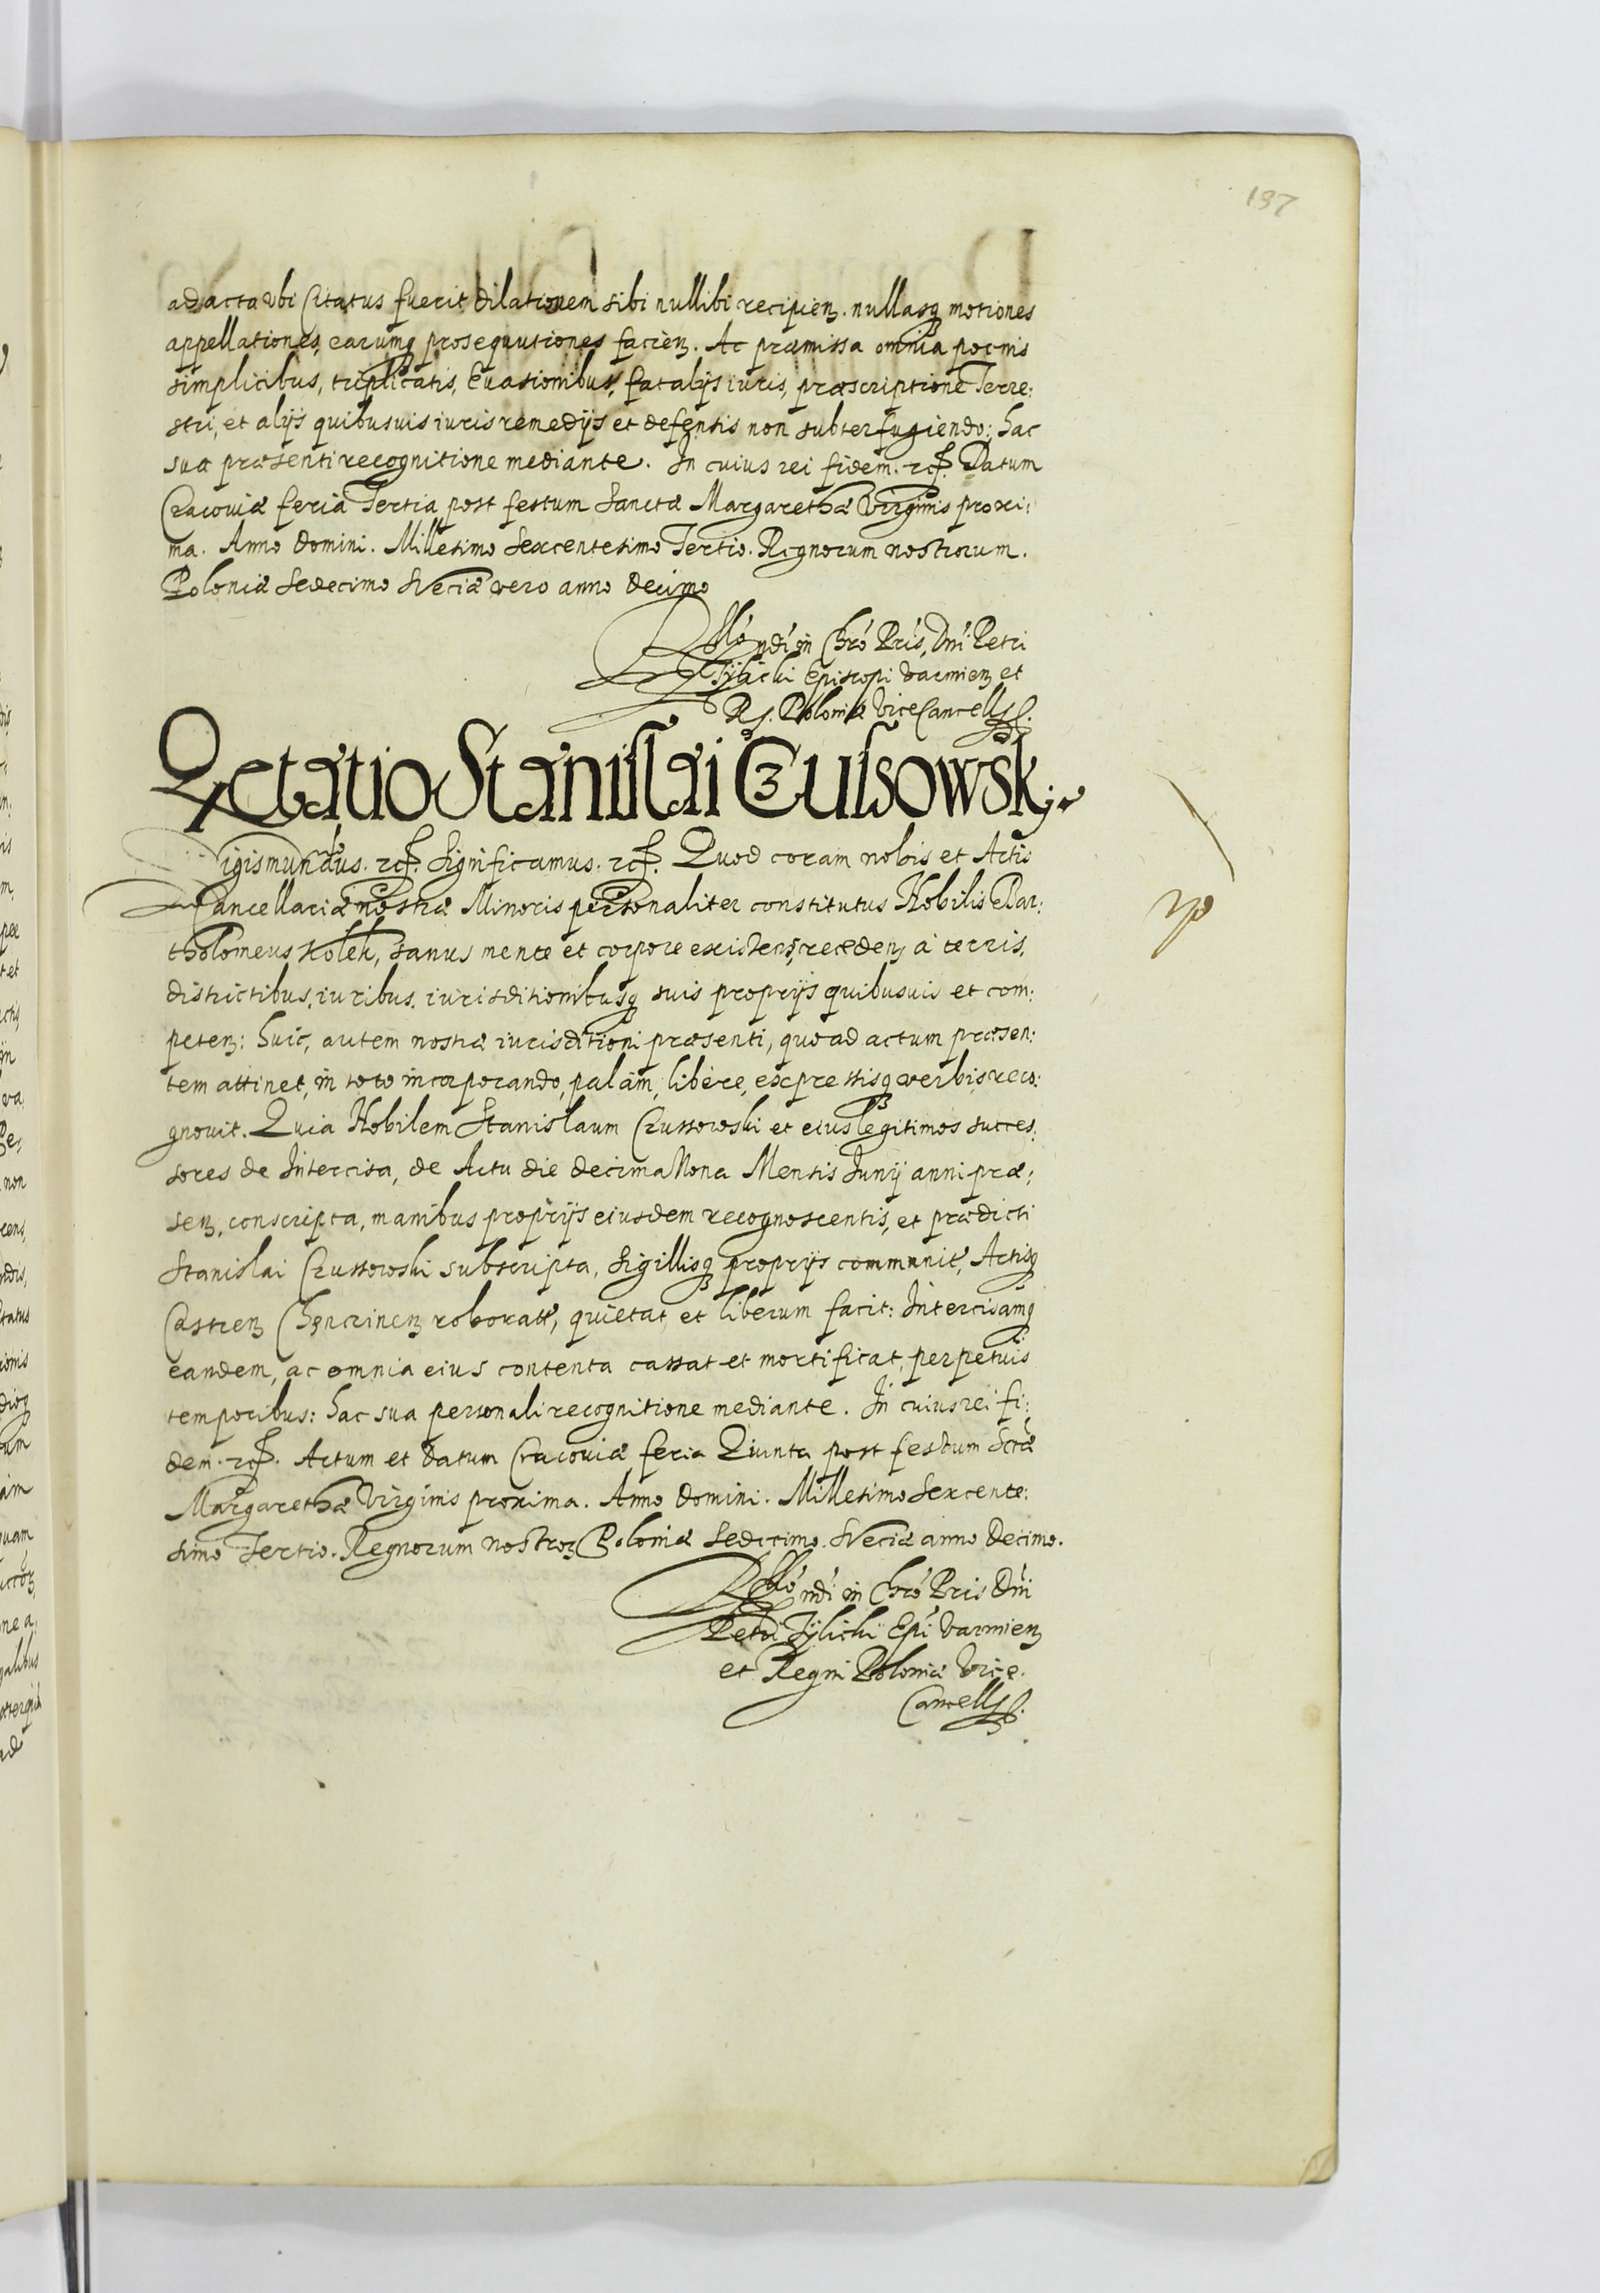 197
ad acta vbi Citatus fuerit dilationem sibi nullibi recipien. nullasq motiones
appellationes, earumq prosequutiones facien. Ac præmissa omnia pœnis
simplicibus, triplicatis, Euasionibus, fatalijs iuris, præscriptione Terre:
stri, et alijs quibusuis iuris remedijs et defensis non subterfugiendo: hac
sua præsenti recognitione mediante. In cuius rei fidem. etc. Datum
Cracouiæ feria Tertia post festum Sanctæ Margarethæ Virginis proxi:
ma. Anno Domini. Millesimo Sexcentesimo Tertio. Regnorum nostrorum.
Poloniæ Sedecimo Sveciæ vero anno Decimo
Rllo ndi in Chro Pris, Dni Petri
Tylicki Episcopi Varmien et
Rg. Poloniæ ViceCancell.
Qctatio Stanislai Czussowsk.
Sigismundus. etc. Significamus. etc. Quod coram nobis et Actis
Cancellariæ nostræ Minoris personaliter constitutus Nobilis Bar:
tholomeus Kołek, sanus mente et corpore existens, receden à terris,
districtibus, iuribus, iurisditionibusq suis proprijs quibusuis et com:
peten: huic, autem nostræ iurisditioni præsenti, quo ad actum præsen:
tem attinet, in toto incorporando, palàm, libère, expressisq verbis, reco:
gnouit. Quia Nobilem Stanislaum Czussowski et eius legitimos succes:
sores de Intercisa, de Actu die decima Nona Mensis Junij anni præ:
sen, conscripta, manibus proprijs eiusdem recognoscentis, et prædicti
Stanislai Czussowski subscripta, Sigillisq proprijs communit, Actisq
Castren Chęncinen roborat, quietat et liberum facit: Intercisamq
eandem, ac omnia eius contenta cassat et mortificat, perpetuis
temporibus: hac sua personali recognitione mediante. In cuius rei fi:
dem. etc. Actum et Datum Cracouiæ feria Quinta post festum Sctæ
Margarethæ Virginis proxima. Anno Domini. Millesimo Sexcente:
simo Tertio. Regnorum nostror Poloniæ Sedecimo. Sveciæ anno Decimo.
Rllo ndi in Chro Pris Dni
Petri Tylicki Epi Varmien
et Regni Poloniæ Vice.
Cancell.